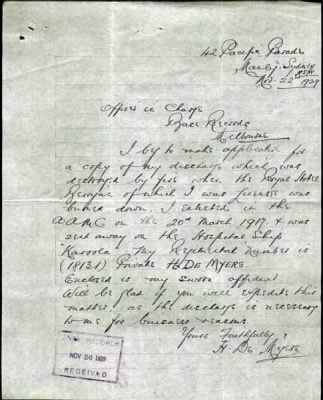 42 Pacific Parade
Manly, Sydney
NSW
Nov. 22nd 1929
Officer in Charge
Base Records
Melbourne
I beg to make application for
a copy of my discharge which was
destroyed by fire when the Royal Hotel
of which I was licensee was
burnt down. I enlisted in the
A.A.M.C on the 20th March 1917, & was
sent away on the Hospital Ship
"Karoola". My Regimental Number is
(19151) Private H. DE MYERS.
Enclosed is my sworn affidavit
Will be glad if you will expedite this
matter, as the discharge is necessary
to me for business reasons.
Yours Faithfully,
H. De Myers
RECORDS
NOV 26 1929
RECEIVED